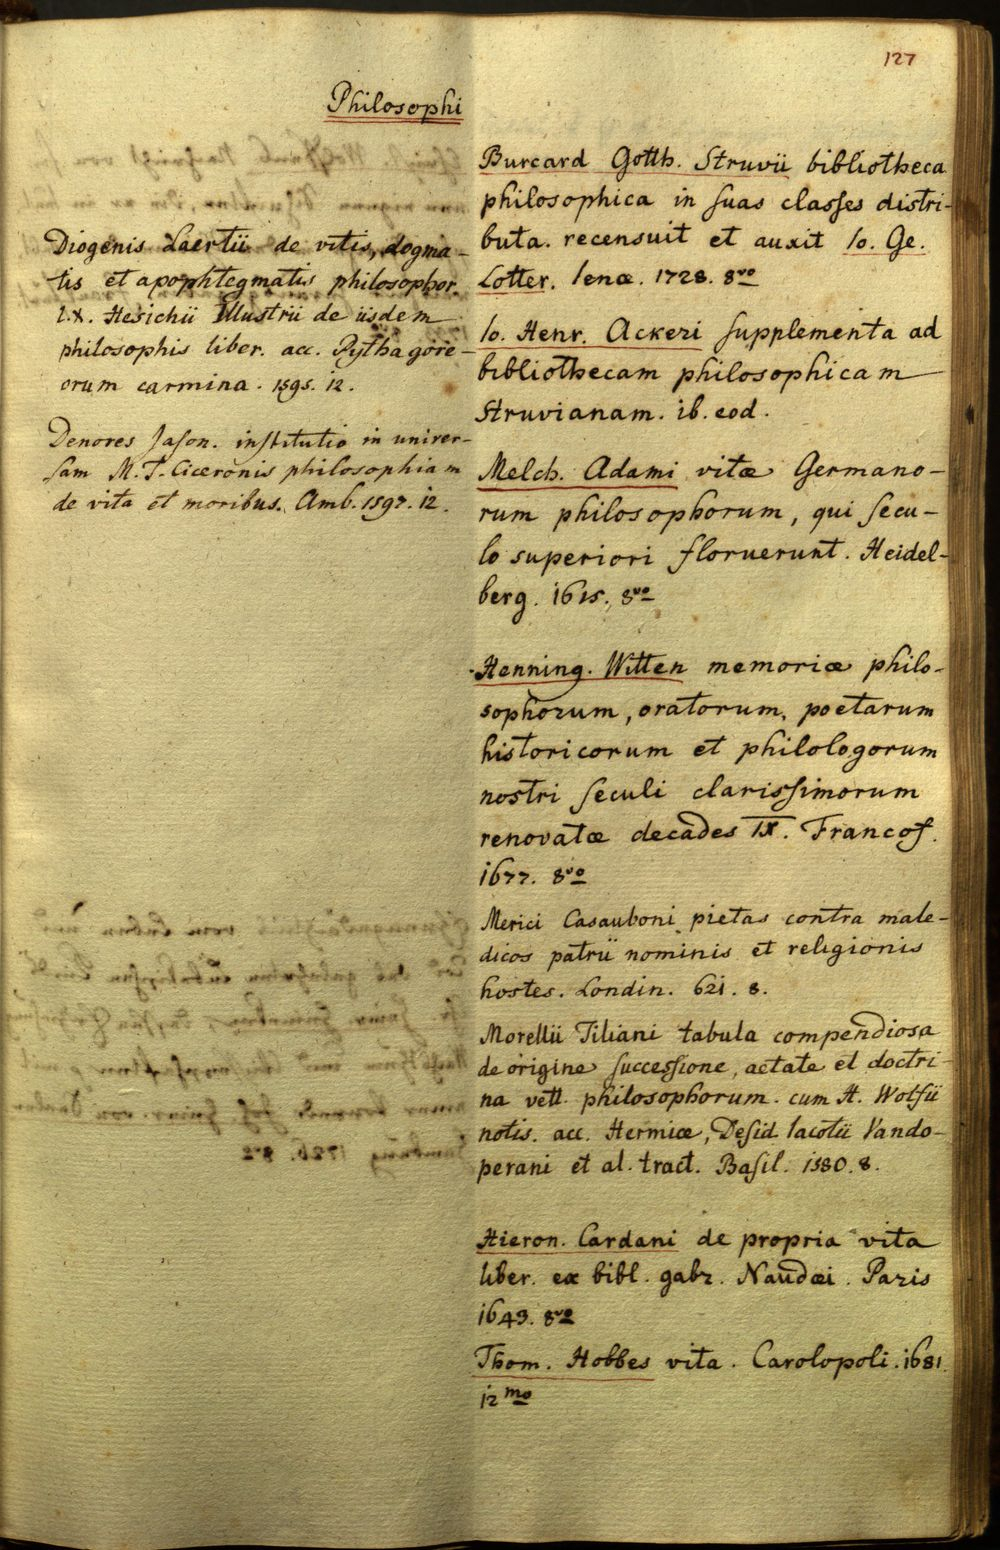 127
Philosophi
Diogenis Laertii de vitis, dogma-
tis et apophtegmatis philosophor.
l.X. Hesichii Illustrii de iisdem
philosophis liber. acc. Pythagore-
orum carmina. 1595. 12.
Denores Jason. institutio in univer-
sam M. T. Ciceronis philosophiam
de vita et moribus. Amb. 1597. 12.
Burcard Gotth. Struvii bibliotheca
philosophica in suas classes distri-
buta. recensuit et auxit Io. Ge.
Lotter. Ienæ. 1728. 8vo
Io. Henr. Ackeri supplementa ad
bibliothecam philosophicam
Struvianam. ib. eod.
Melch. Adami vitæ Germano-
rum philosophorum, qui secu-
lo superiori floruerunt. Heidel-
berg. 1615. 8vo
Henning. Witten memoriæ philo-
sophorum, oratorum, poetarum
historicorum et philologorum
nostri seculi clarissimorum
renovatæ decades IX. Francof.
1677. 8vo
Merici Casauboni pietas contra male-
dicos patrii nominis et religionis
hostes. Londin. 621. 8.
Morellii Tiliani tabula compendiosa
de origine successione, aetate et doctri-
na vett. philosophorum. cum H. Wolfii
notis. acc. Hermiæ, Desid. Iacotii Vando-
perani et al. tract. Basil. 1580. 8.
Hieron. Cardani de propria vita
liber. ex bibl. gabr. Naudæi. Paris
1643. 8vo
Thom. Hobbes vita. Carolopoli. 1681.
12mo